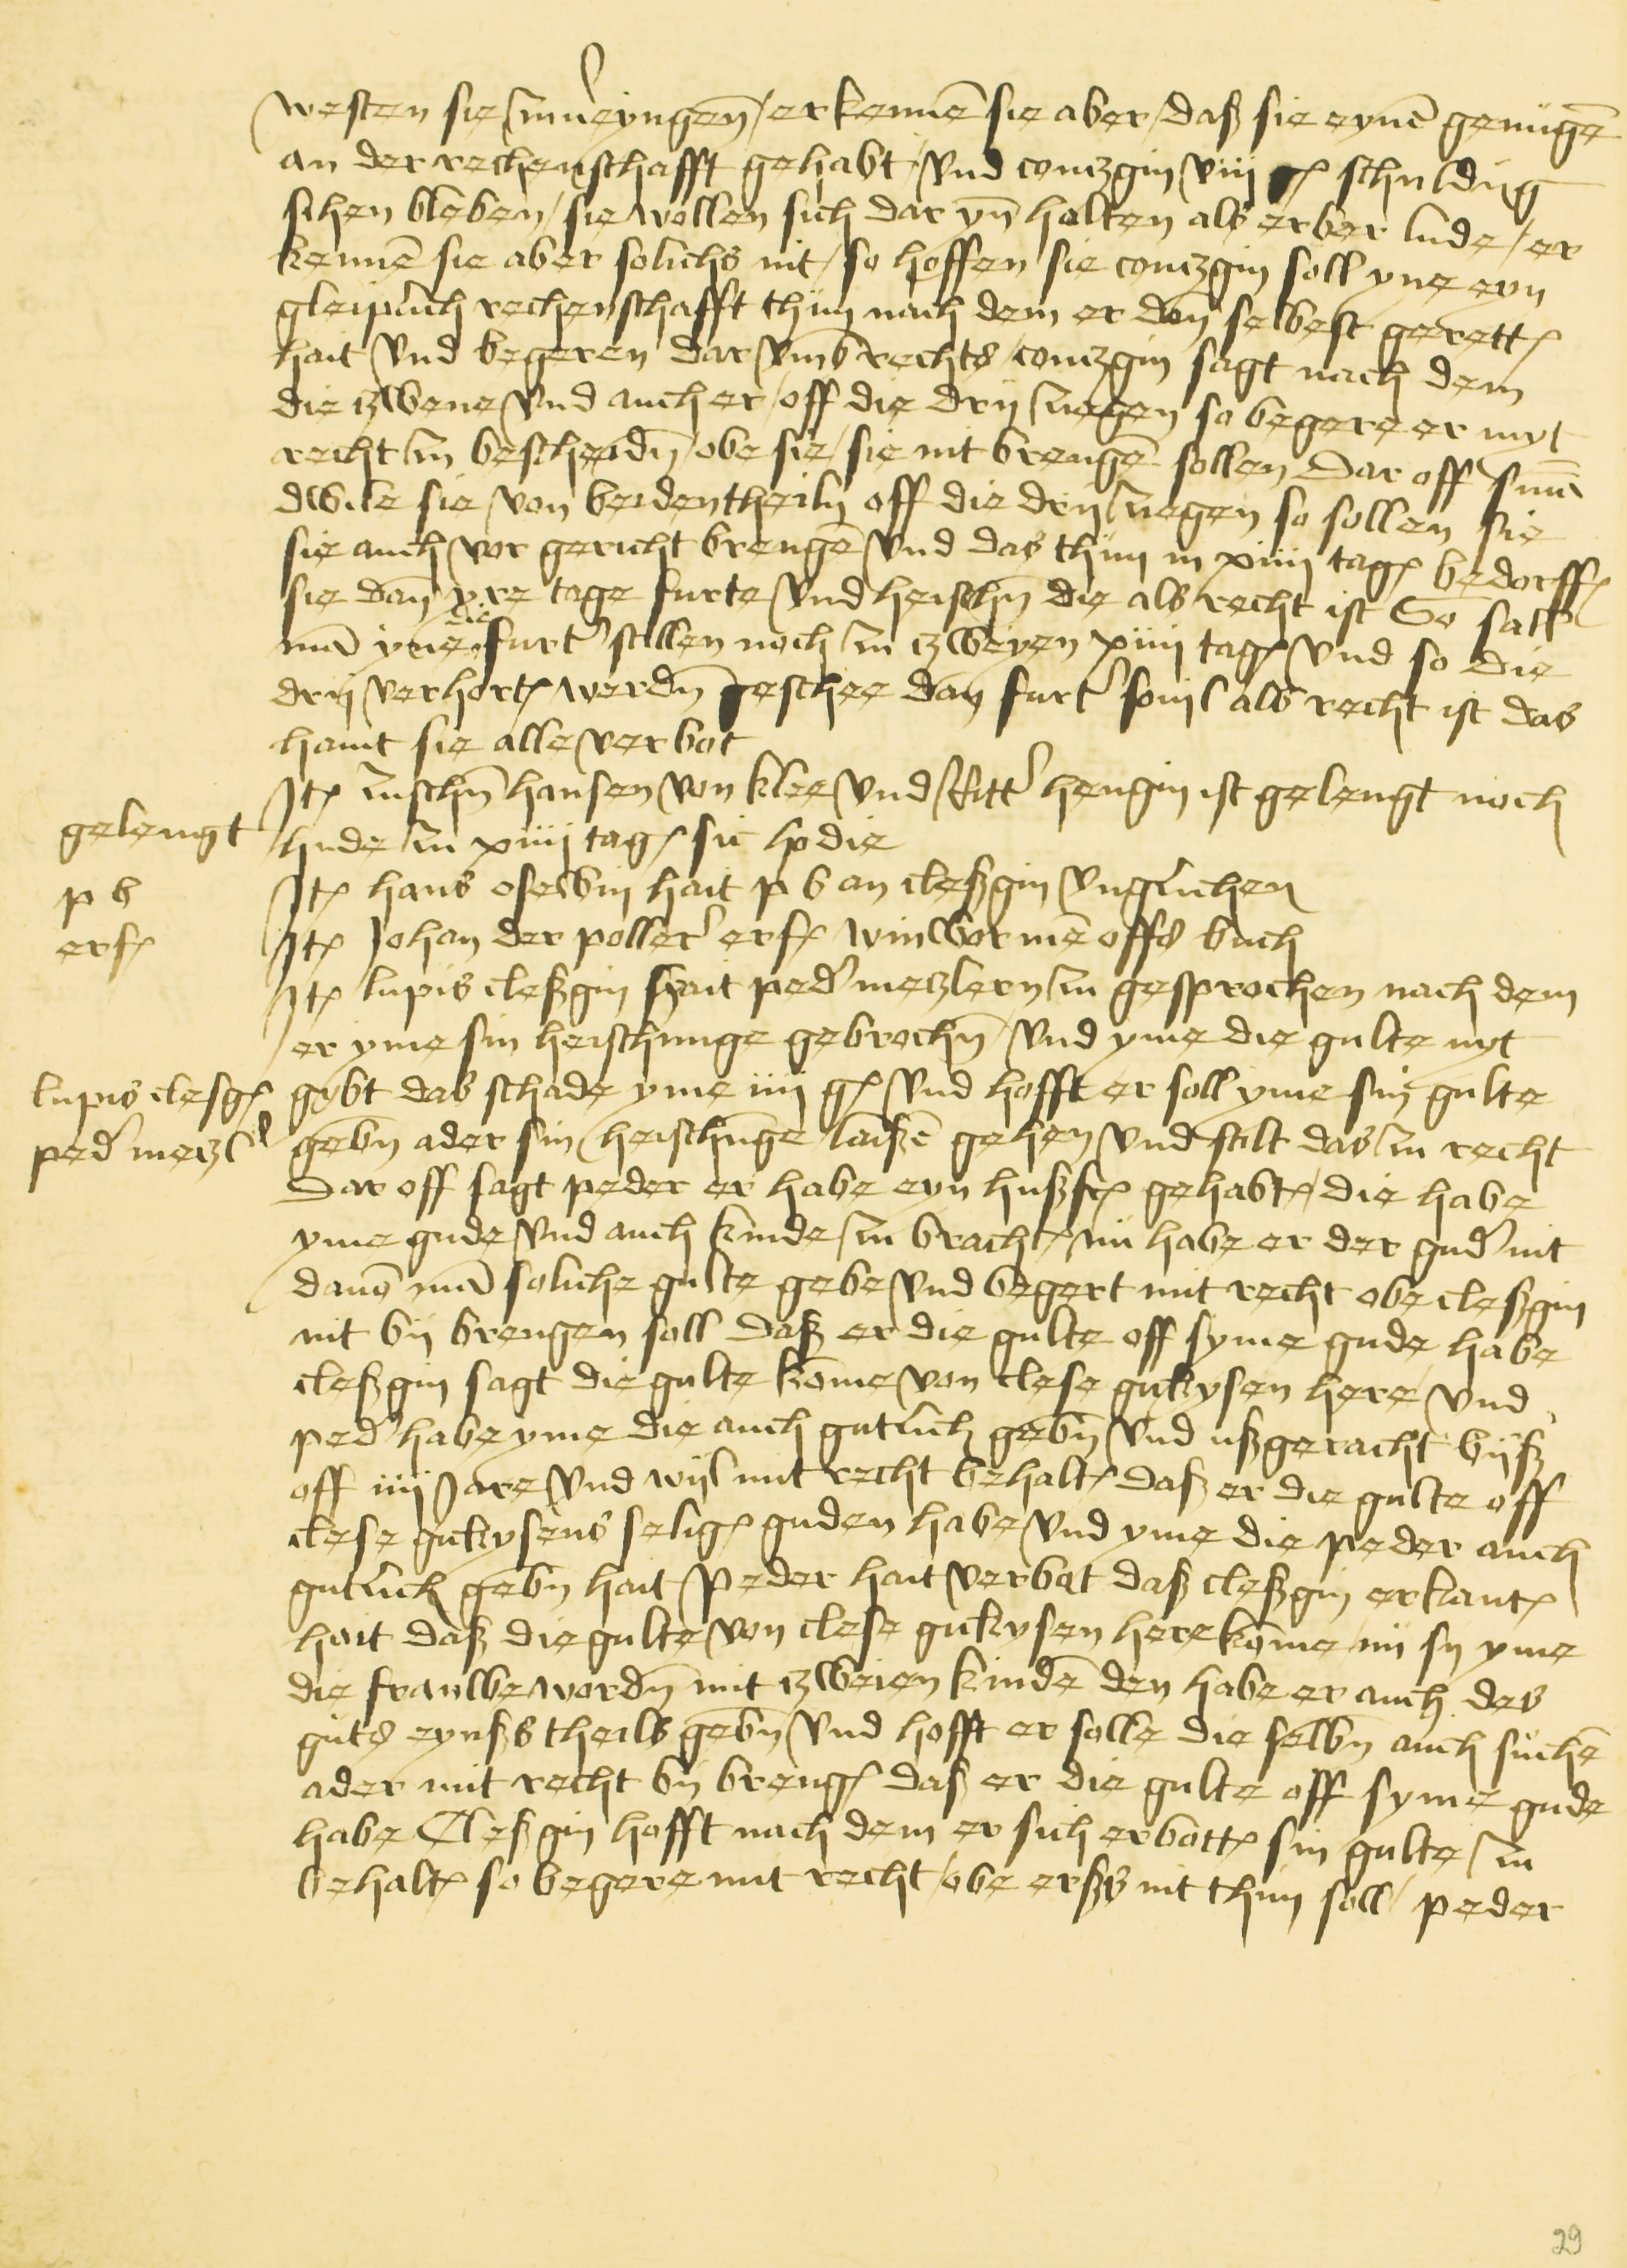 westen sie zuuereyngen / erkenne sie aber / daß sie eyne genuge
an der rechenschafft gehabt / vnd conczgin viij schuldig
sihen bleben / sie wollen sich dar yn halten als erber lude / er
kenne sie aber solichs nit / so hoffen sie conczgin soll yne eyn
rechenschafft thun nach dem er dan selbest gerett
hait vnd begeren dar vmb rechts / conczgin sagt nach dem
die zwene vnd auch er / off die drij zuegen so begere er myt
recht zu bescheidn / obe sie / sie nit brenge sollen Dar off
dwile sie von beidentheiln off die drij zuegen so sollen sie
sie auch vor gericht brenge vnd das thun in xiiij tag bedorff
sie dan yre tage furte vnd heischn die als recht ist So sall
ma yne die furt stillen noch zu zweyen xiiij tag vnd so die
drij verhort werdn geschee dan furt souil als recht ist das
haint sie alle verbot
Jt zuschn hansen von klee vnd hengin ist gelengt noch
gelengt
hude zu xiiij tag sic hodie
p b
Jt hans osewin hait p b an cleßgin vnglichen
erf
Jt Johan der poller erf winworme offs buch
Jt lupis cleßgin hait ped meczlern zu gesprochen nach dem
er yme sin heischunge gebrochn / vnd yme die gulte nyt
lupis clesg
gybt das schade yme iiij g vnd hofft er soll yme sin gulte
ped meczl
gebn ader sin heischuge laiße gehen vnd stalt das zu recht
Dar off sagt peder er habe eyn hußf gehabt / die habe
yme gude vnd auch kinde zu bracht / nu habe er der gud nit
dauo ma soliche gulte gebe vnd begert mit recht obe cleßgin
nit bij brengen soll daß er die gulte off syme gude habe
cleßgin sagt die gulte kome von clese guckysen here / vnd
ped habe yme die auch gutlich gebn vnd ußgeracht bijß
off iiij Jare vnd wil mit recht behalt daß er die gulte off
clese guckysens selig guden habe vnd yme die peder auch
gutlich gebn hait Peder hait verbot daß cleßgin erkant
hait daß die gulte von clese guckysen here kome / nu sy yme
die frauwe wordn mit zweien kinde den habe er auch des
guts eynßs theils gebn vnd hofft er solle die selbn auch suche
ader mit recht bij breng daß er die gulte off syme gude
habe Cleßgin hofft nach dem er sich erbott sin gulte zu
behalt so begere mit recht / obe erßs nit thun soll / peder
29